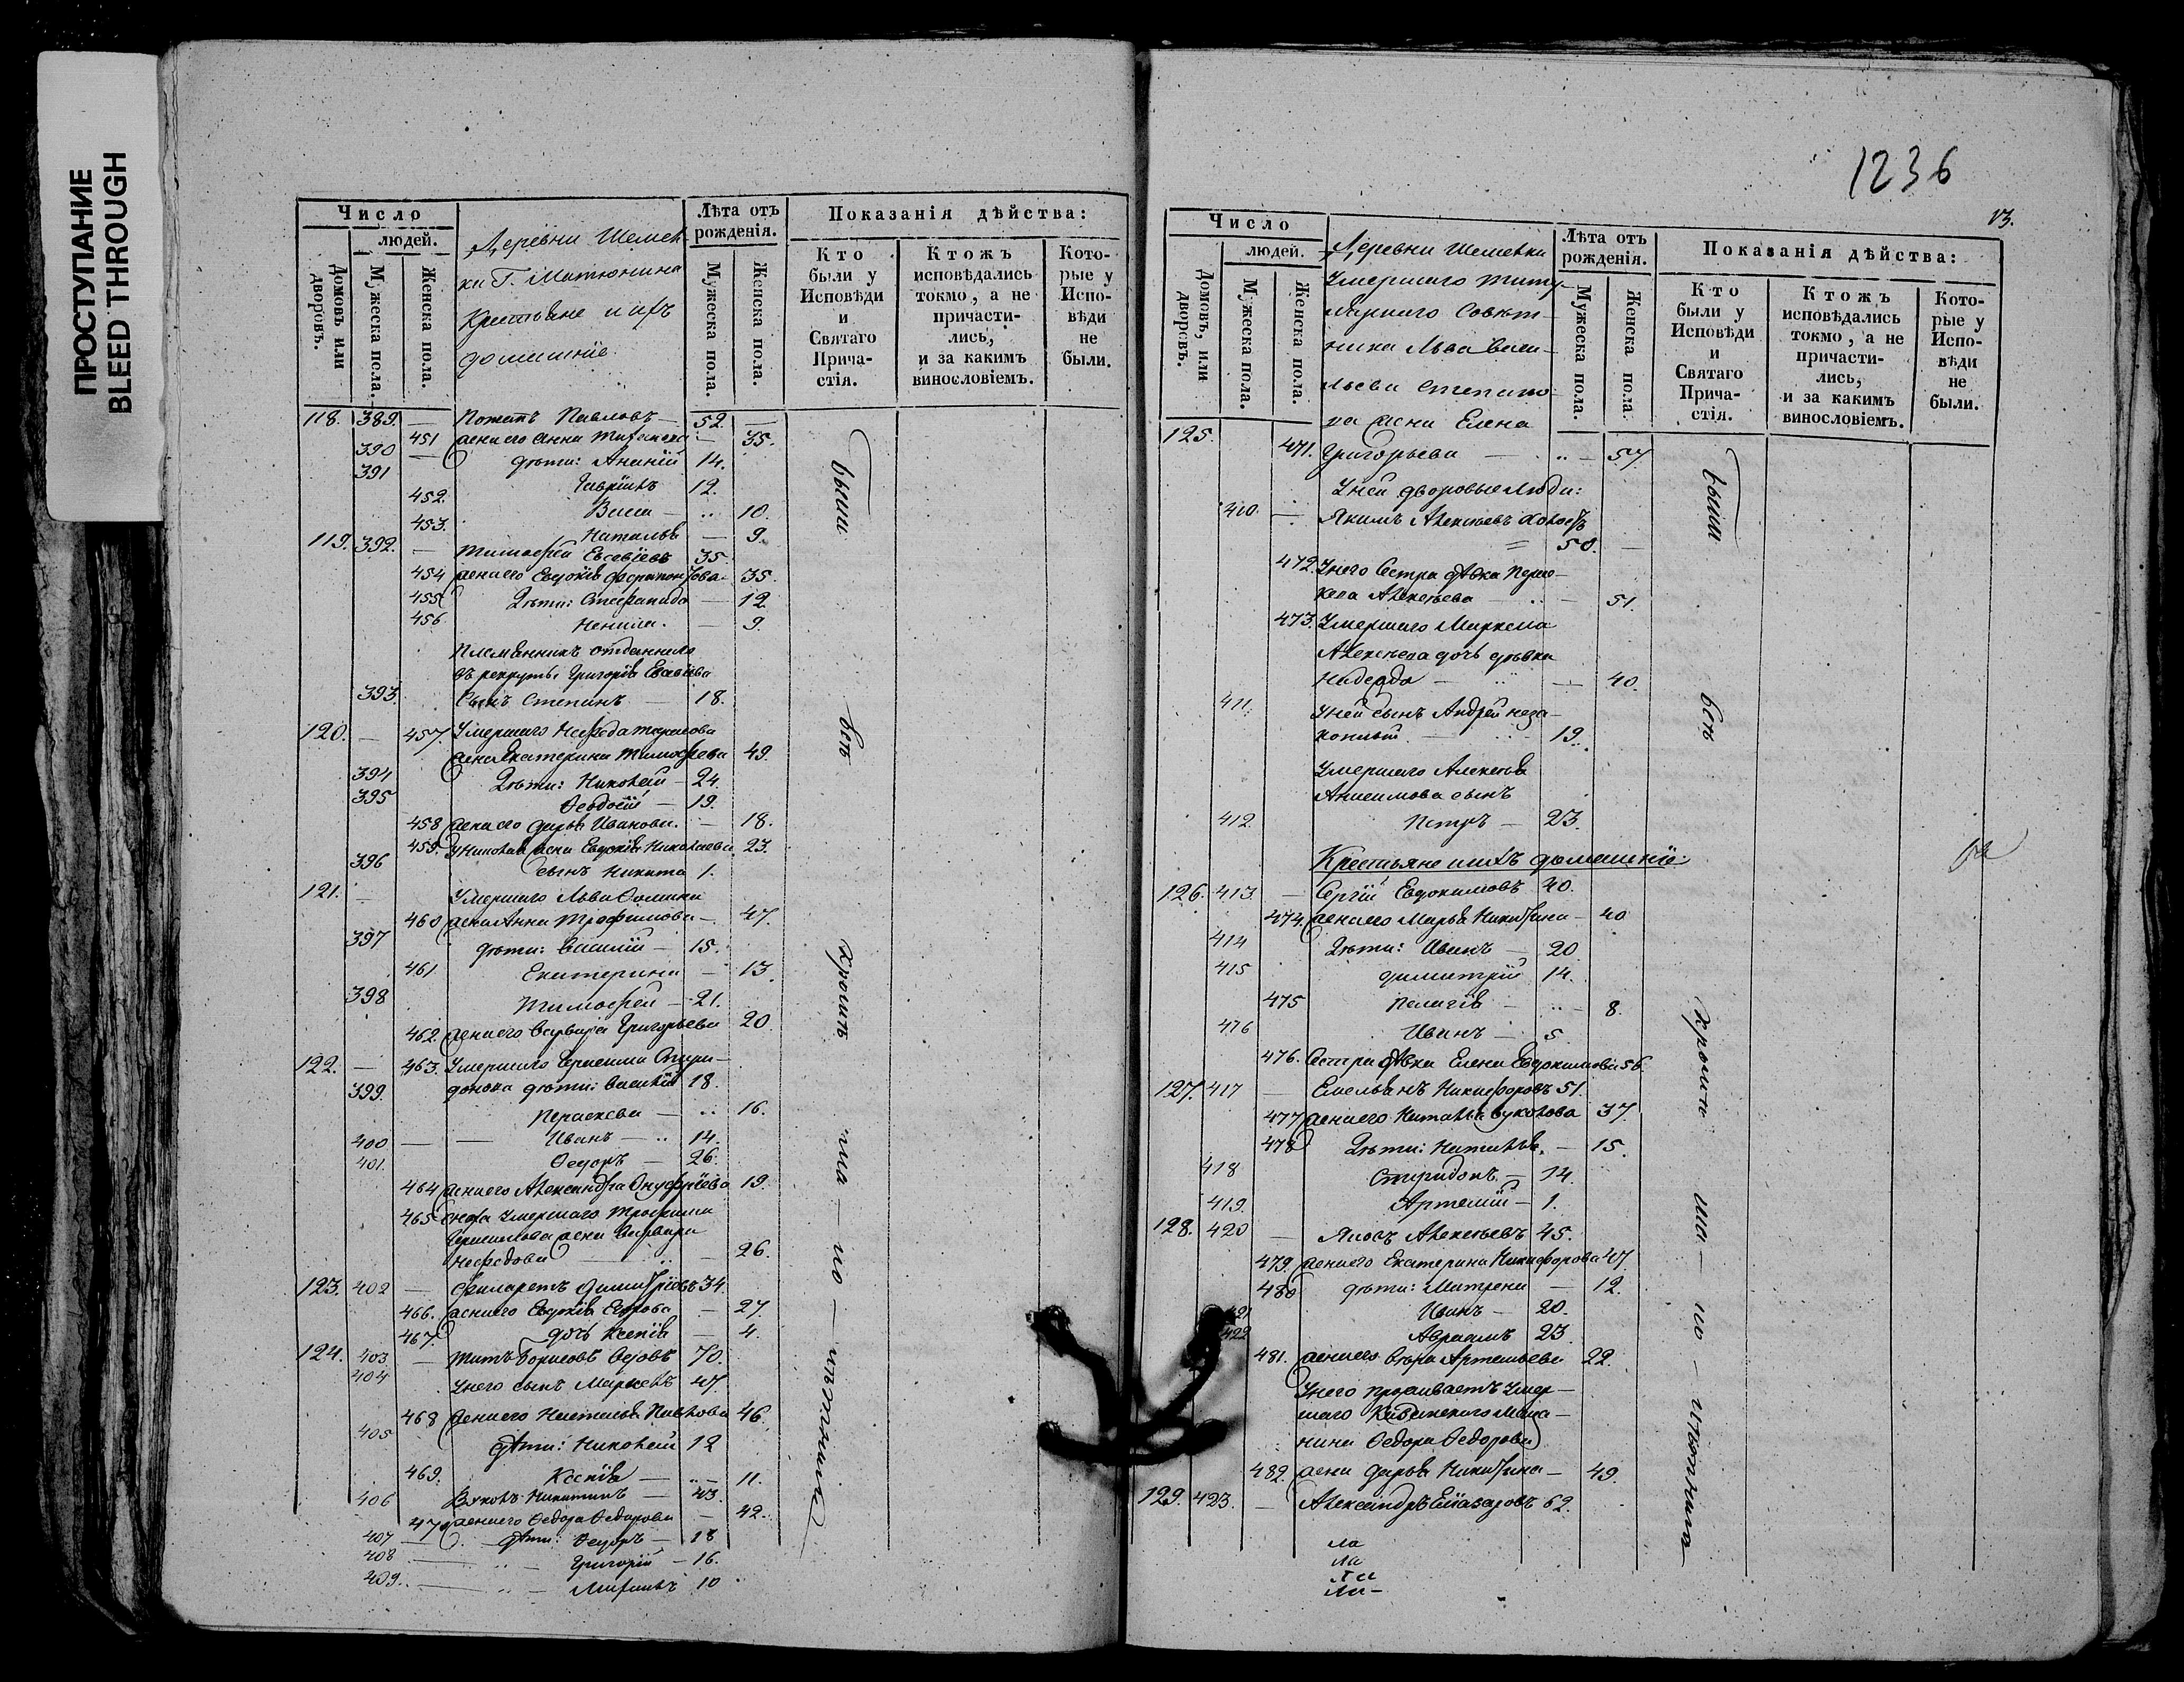 ПРОСТУПАНИЕ
BLEED THROUGH
Число
людей.
Домовъ или дворовъ.
Мужеска пола.
Женска пола.
Деревни Шемет
ки Г. Митюнина
Крестьяне и ихъ
домашніе
Лѣта отъ рожденія.
Мужеска пола.
Женска пола.
Показанія дѣйства:
Кто были у Исповѣди и Святаго Причастія.
Ктожъ исповѣдались токмо, а не причастились, и за какимъ винословіемъ.
Которые у Исповѣди не были.
118. 389. — Павловъ — 52.
451 жена его Анна — 35.
390 дѣти: Ананій 14.
391 Гавріилъ 12.
452. Васса — 10.
453. Наталья — 9.
119. 392. — Тимофей Евсевіевъ 35.
454 жена его Евдокія 35.
455 Дѣти: Степанида — 12
456 Ненила. — 9.
Племянникъ отданнаго
въ рекруты Григорія Евсевіева
393. Сынъ Степанъ — 18.
120. — 457. Умершаго Нефеда
жена Екатерина Тимофеева 49.
394 Дѣти: Николай — 24.
395 Ѳеодосій — 19.
458 жена его Дарья Иванова. — 18.
459. У Николая жена Евдокія Николаева 23.
396 сынъ Никита 1.
121. — Умершаго Льва Ѳомина
460 жена Анна Трофимова — 47.
397 дѣти: Василій — 15.
461 Екатерина — 13.
398 Тимофей — 21.
462. жена его Варвара Григорьева 20.
122. — 463. Умершаго Герасима Спири-
399. донова дѣти: Василій 18.
Параскева — 16.
400 — — Иванъ — 14.
401. Ѳедоръ — 26.
464 жена его Александра Онуфріева 19.
465 Сноха умершаго Трофима
Герасимова жена Варвара
Нефедова — 26.
123. 402 — Филаретъ Димитріевъ 34.
466. жена его Евдокія — 27.
467. дочь Ксенія — 4.
124. 403 — Титъ Борисовъ 70.
404 У него сынъ 47.
468 жена его Наталья Павлова 46.
405 дѣти: Николай 12
469. Ксенія — 11.
406 Вуколъ Никитинъ — 43.
470 жена его Ѳедора Ѳедорова — 42.
407 — дѣти: Ѳедоръ — 18
408 — Григорій — 16.
409. — 10
были
всѣ
кромѣ
1236
13.
Число
людей.
Домовъ, или дворовъ.
Мужеска пола.
Женска пола.
Деревни Шеметки
Умершаго Титу-
лярнаго Совѣт-
ника Льва Васи-
льева
жена Елена
Лѣта отъ рожденія.
Мужеска пола.
Женска пола.
Показанія дѣйства:
Кто были у Исповѣди и Святаго Причастія.
Ктожъ исповѣдались токмо, а не причастились, и за какимъ винословіемъ.
Которые у Исповѣди не были.
125. 471. Григорьева — 57.
У ней дворовые люди:
410. — Якимъ Алексѣевъ
50. —
472. У него Сестра дѣвка Парас-
кева Алексѣева — 51.
473. Умершаго
Алексѣева дочь дѣвка
Надежда — 40.
411. У ней сынъ Андрей неза-
конный — 19.
Умершаго Алексѣя
Анисимова сынъ
412. Петръ — 23.
Крестьяне и ихъ домашніе:
126. 413. — Сергій Евдокимовъ 40.
474. жена его Марья Никитина — 40
414 Дѣти: Иванъ — 20
415 Димитрій 14.
475 Пелагія — 8.
416 Иванъ — 5.
476. Сестра дѣвка Елена Евдокимова 56.
127. 417 — Емельянъ Никифоровъ 51.
477 жена его Наталья Вуколова 37.
478 Дѣти: Наталья. — 15.
418 Спиридонъ — 14.
419. Артемій — 1.
128. 420 — Алексѣевъ 45.
479. жена его Екатерина Никифорова 47.
480 дѣти: Матрена — 12.
421 Иванъ — 20.
422 Авраамъ 23.
481. жена его Артемьева 22.
У него проживаетъ умер-
шаго
Ѳедора Ѳедорова
482. жена Дарья Никитина — 49.
129. 423. — Александръ Елиазаровъ 62.
ла
ла
ла
ла —
были
всѣ
кромѣ